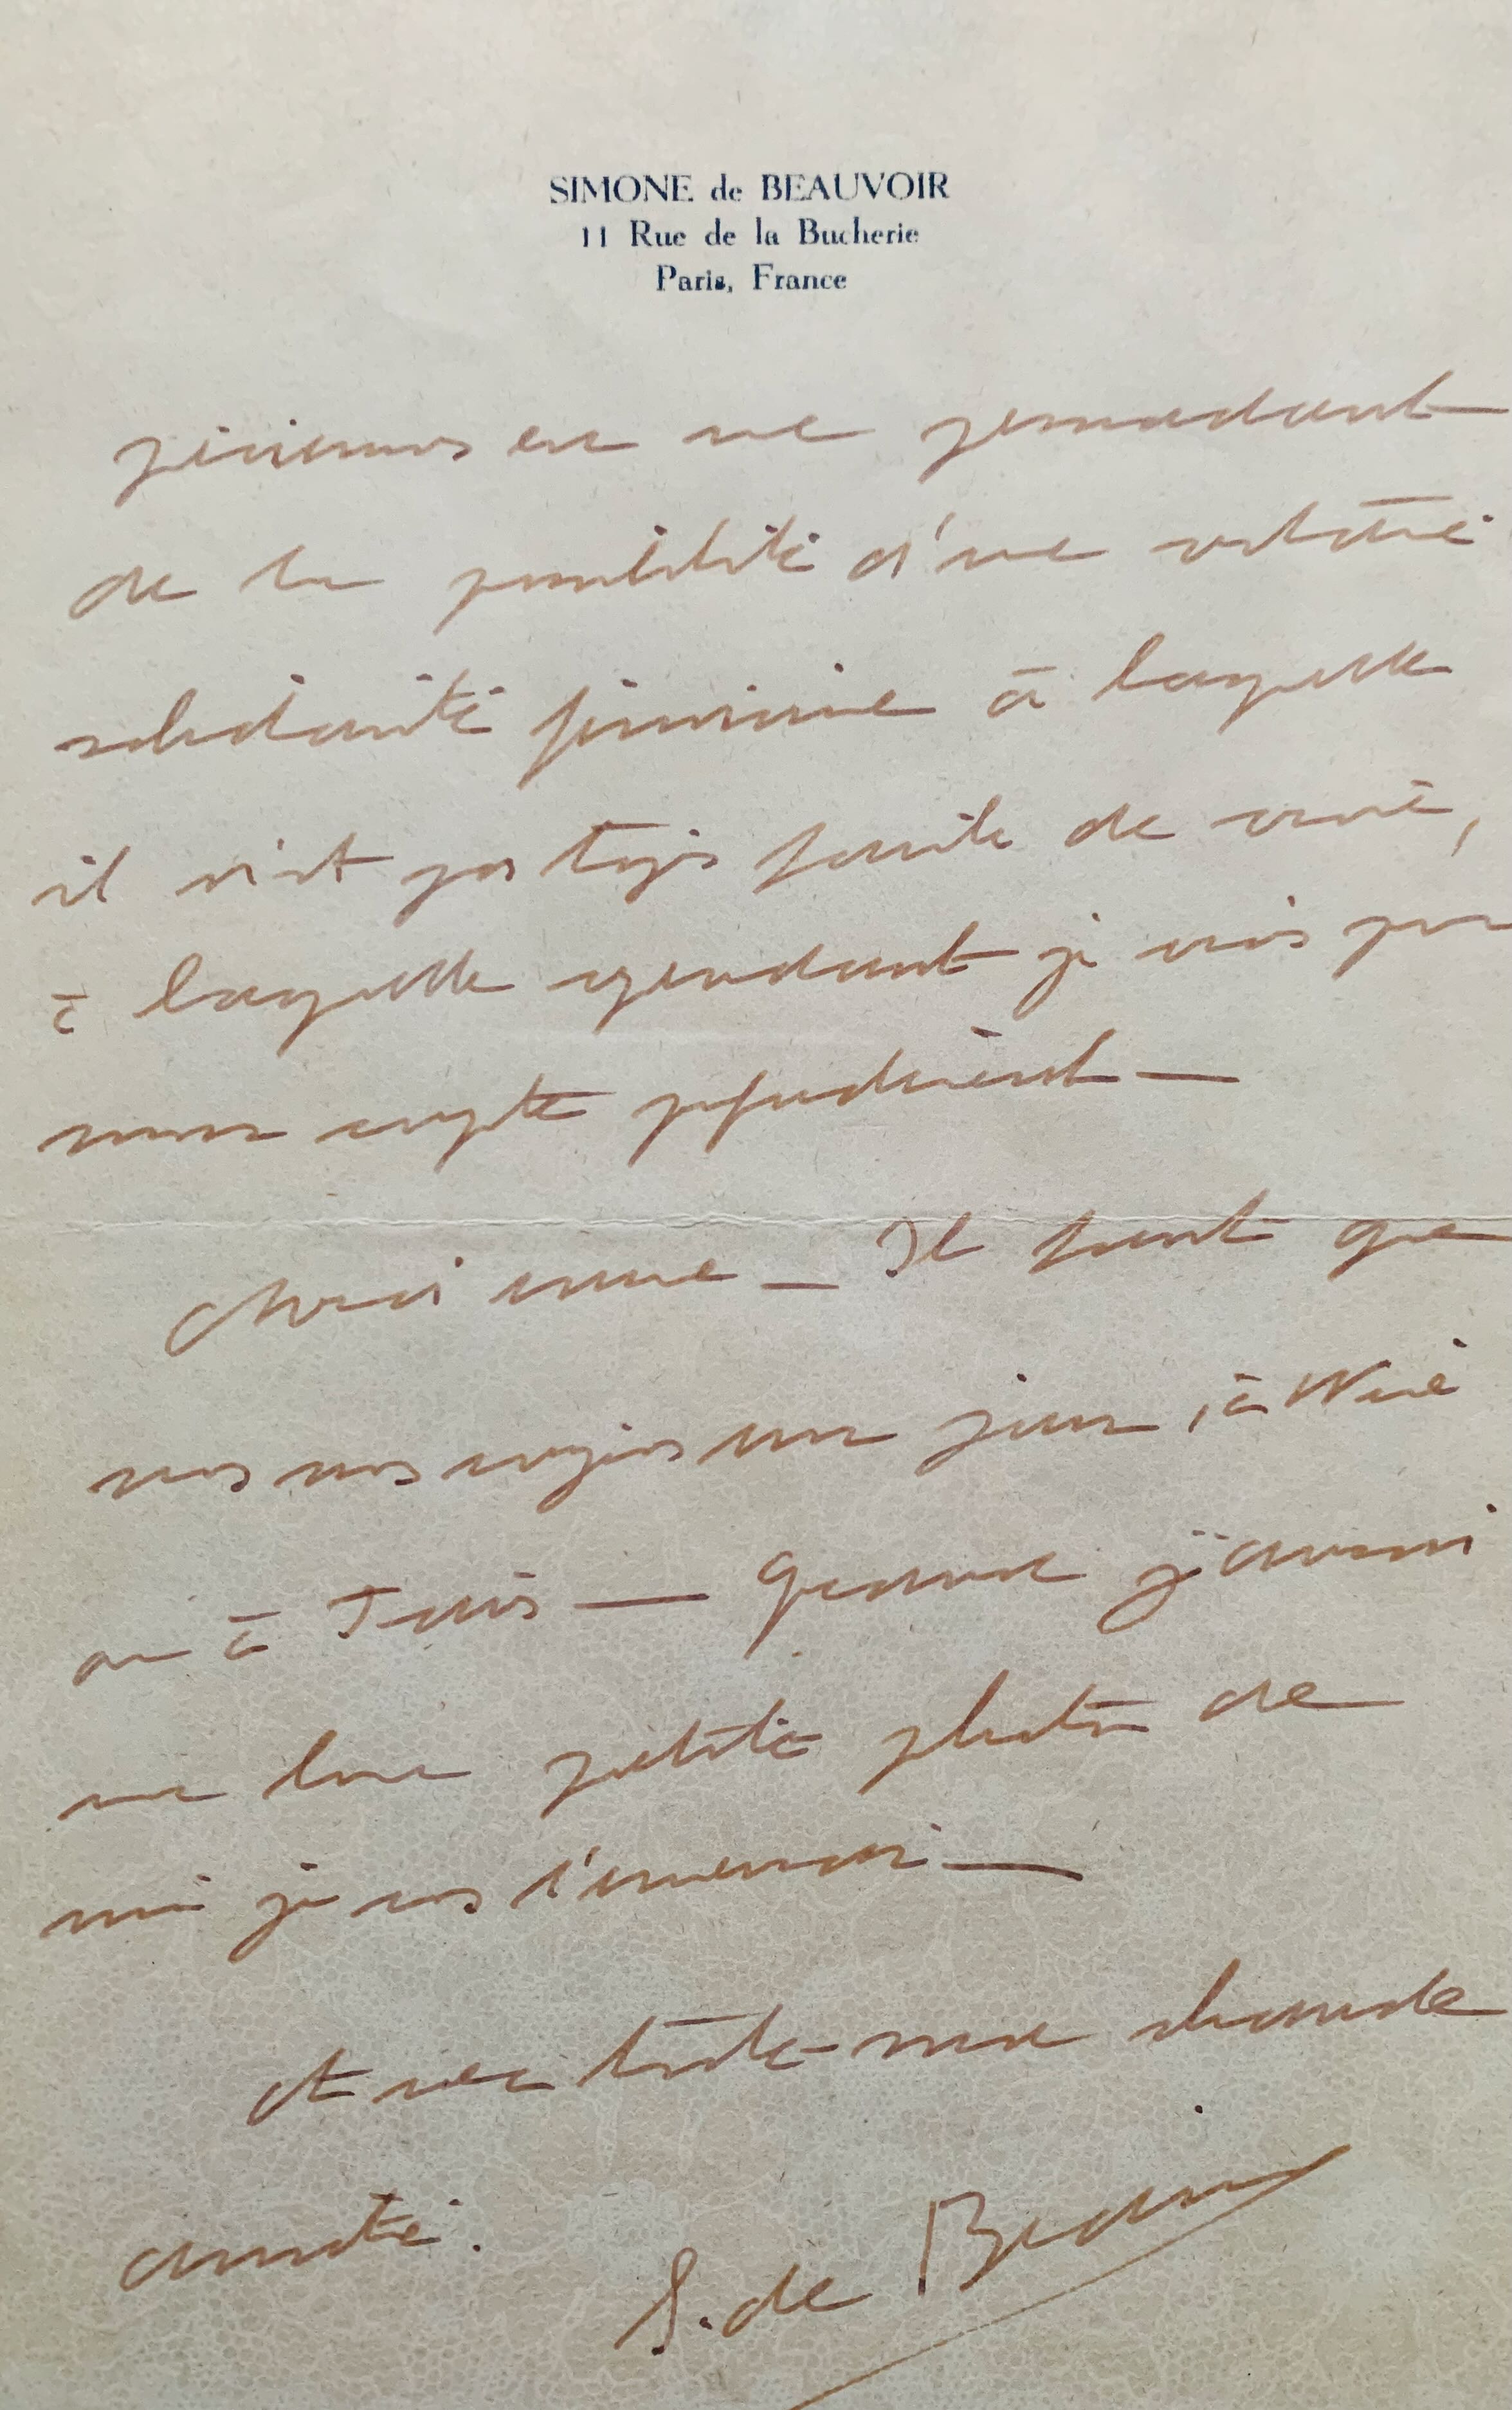 SIMONE de BEAUVOIR
11 Rue de la Bucherie
Paris, France
précieuses en me persuadant
de la possibilité d'une véritable
solidarité féminine à laquelle
il n'est pas tjrs facile de croire,
à laquelle cependant je crois pour
mon compte profondément —
Chère amie — Il faut que
nous nous voyions un jour, à
ou à Paris — Quand j'aurai
une bonne petite photo de
moi je vous l'enverrai —
et avec toute ma chaude
amitié.
S. de Beauvoir